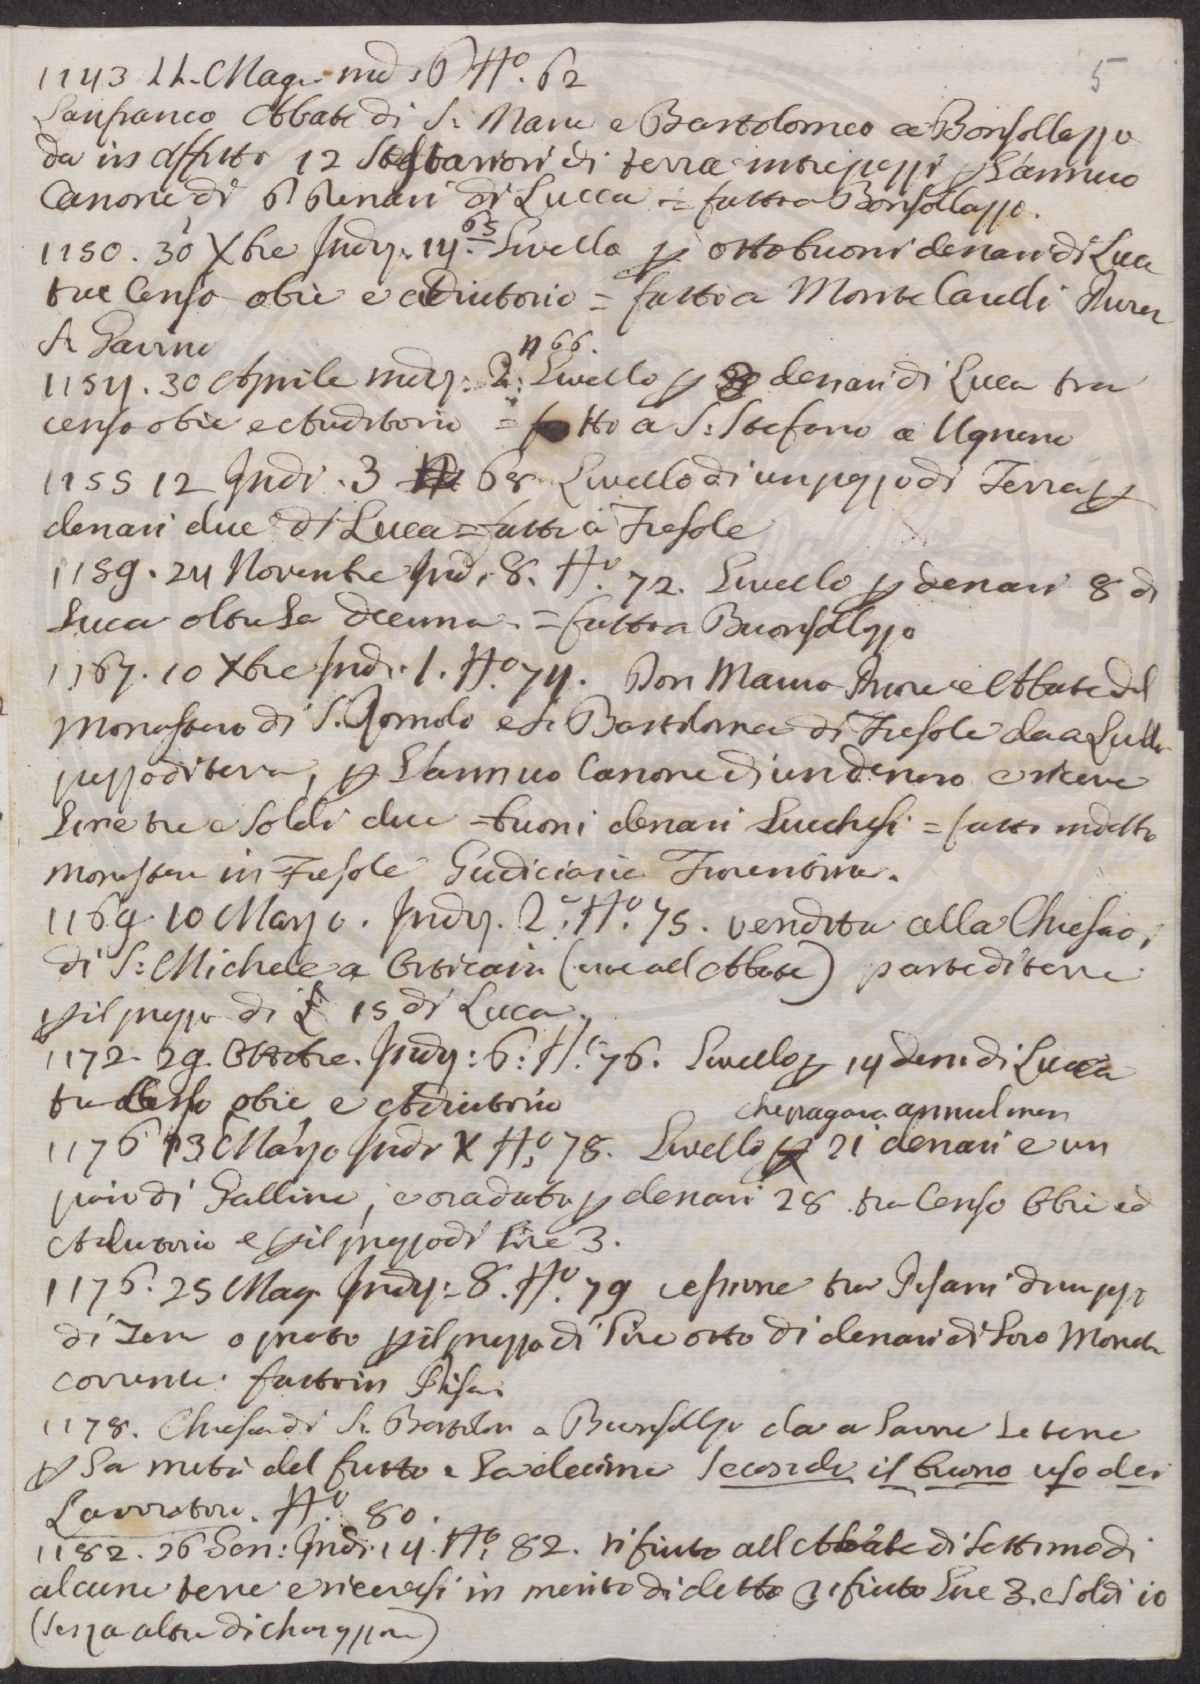 5
1143 11. Mag. ind. 6 No. 62
Lanfranco Abbate di S. Maria e Bartolomeo a Bonsollazzo
da in affitto 12 Staiori di terra in tre pezzi p l'annuo
Canone di 6 denari di Lucca = fatto a Bonsollazzo.
1150. 30 Xbre Indz. 14. 65 Livello p otto buoni denari di Luca
tra Censo obie e adiutorio = fatto a Monte Cauli
S. Gavino
N 66.
1154. 30 Aprile indz. 2. Livello p denari di Luca tra
censo obie e Auditorio = fatto a S: Stefano a Ugnano
1155 12 Indi. 3 68 Livello di un pezzo di Terra p
denari due di Lucca = fatto a Fiesole
1159. 24 Novembre Ind. 8. No. 72. Livello p denari 8 di
Luca oltre la decima. = fatto a Buonsollazzo
1167. 10 Xbre Indi. 1. No. 74. Don Mauro Priore e Abbate del
Monastero di S. Romolo e di Bartolomeo di Fiesole da a Livello
pezzo di terra, p l'annuo Canone di un denaro e riceve
Lire tre e Soldi due = buoni denari Lucchesi = fatto in detto
monastero in Fiesole Giudiciaria Fiorentina.
1169. 10 Marzo. Indz. 2. No. 75. vendita alla Chiesa
di S: Michele a (cioe all Abbate) parte di terre
p il prezzo di L 15 di Luca.
1172. 29. Ottobre. Indz: 6: No. 76. Livello p 14 den. di Lucca
tra Censo obie e Adiutorio
che pagava annualmen
1176 13 Marzo Indi X No. 78. Livello p 21 denari e un
paio di Galline, e ora data p denari 28 tra Censo Obie ed
Adiutorio e p il prezzo di Lire 3.
1176. 25 Mag. Indz. 8. No. 79 cessione tra Pisani d un pezzo
di Terra o prato p il prezzo di Lire otto di denari di loro Moneta
corrente. fatto in Pisa.
1178. Chiesa di S. Bartolo a Buonsollazzo da a Lavorare le terre
p la metà del frutto e la decima secondo il buono uso dei
Lavoratori. No. 80.
1182. 26 Gen: Indi. 14. No. 82. rifiuto all Abbate di Settimo di
alcune terre e ricevesi in merito di detto rifiuto Lire 3. e Soldi 10
(senza altra dichiarazzione)